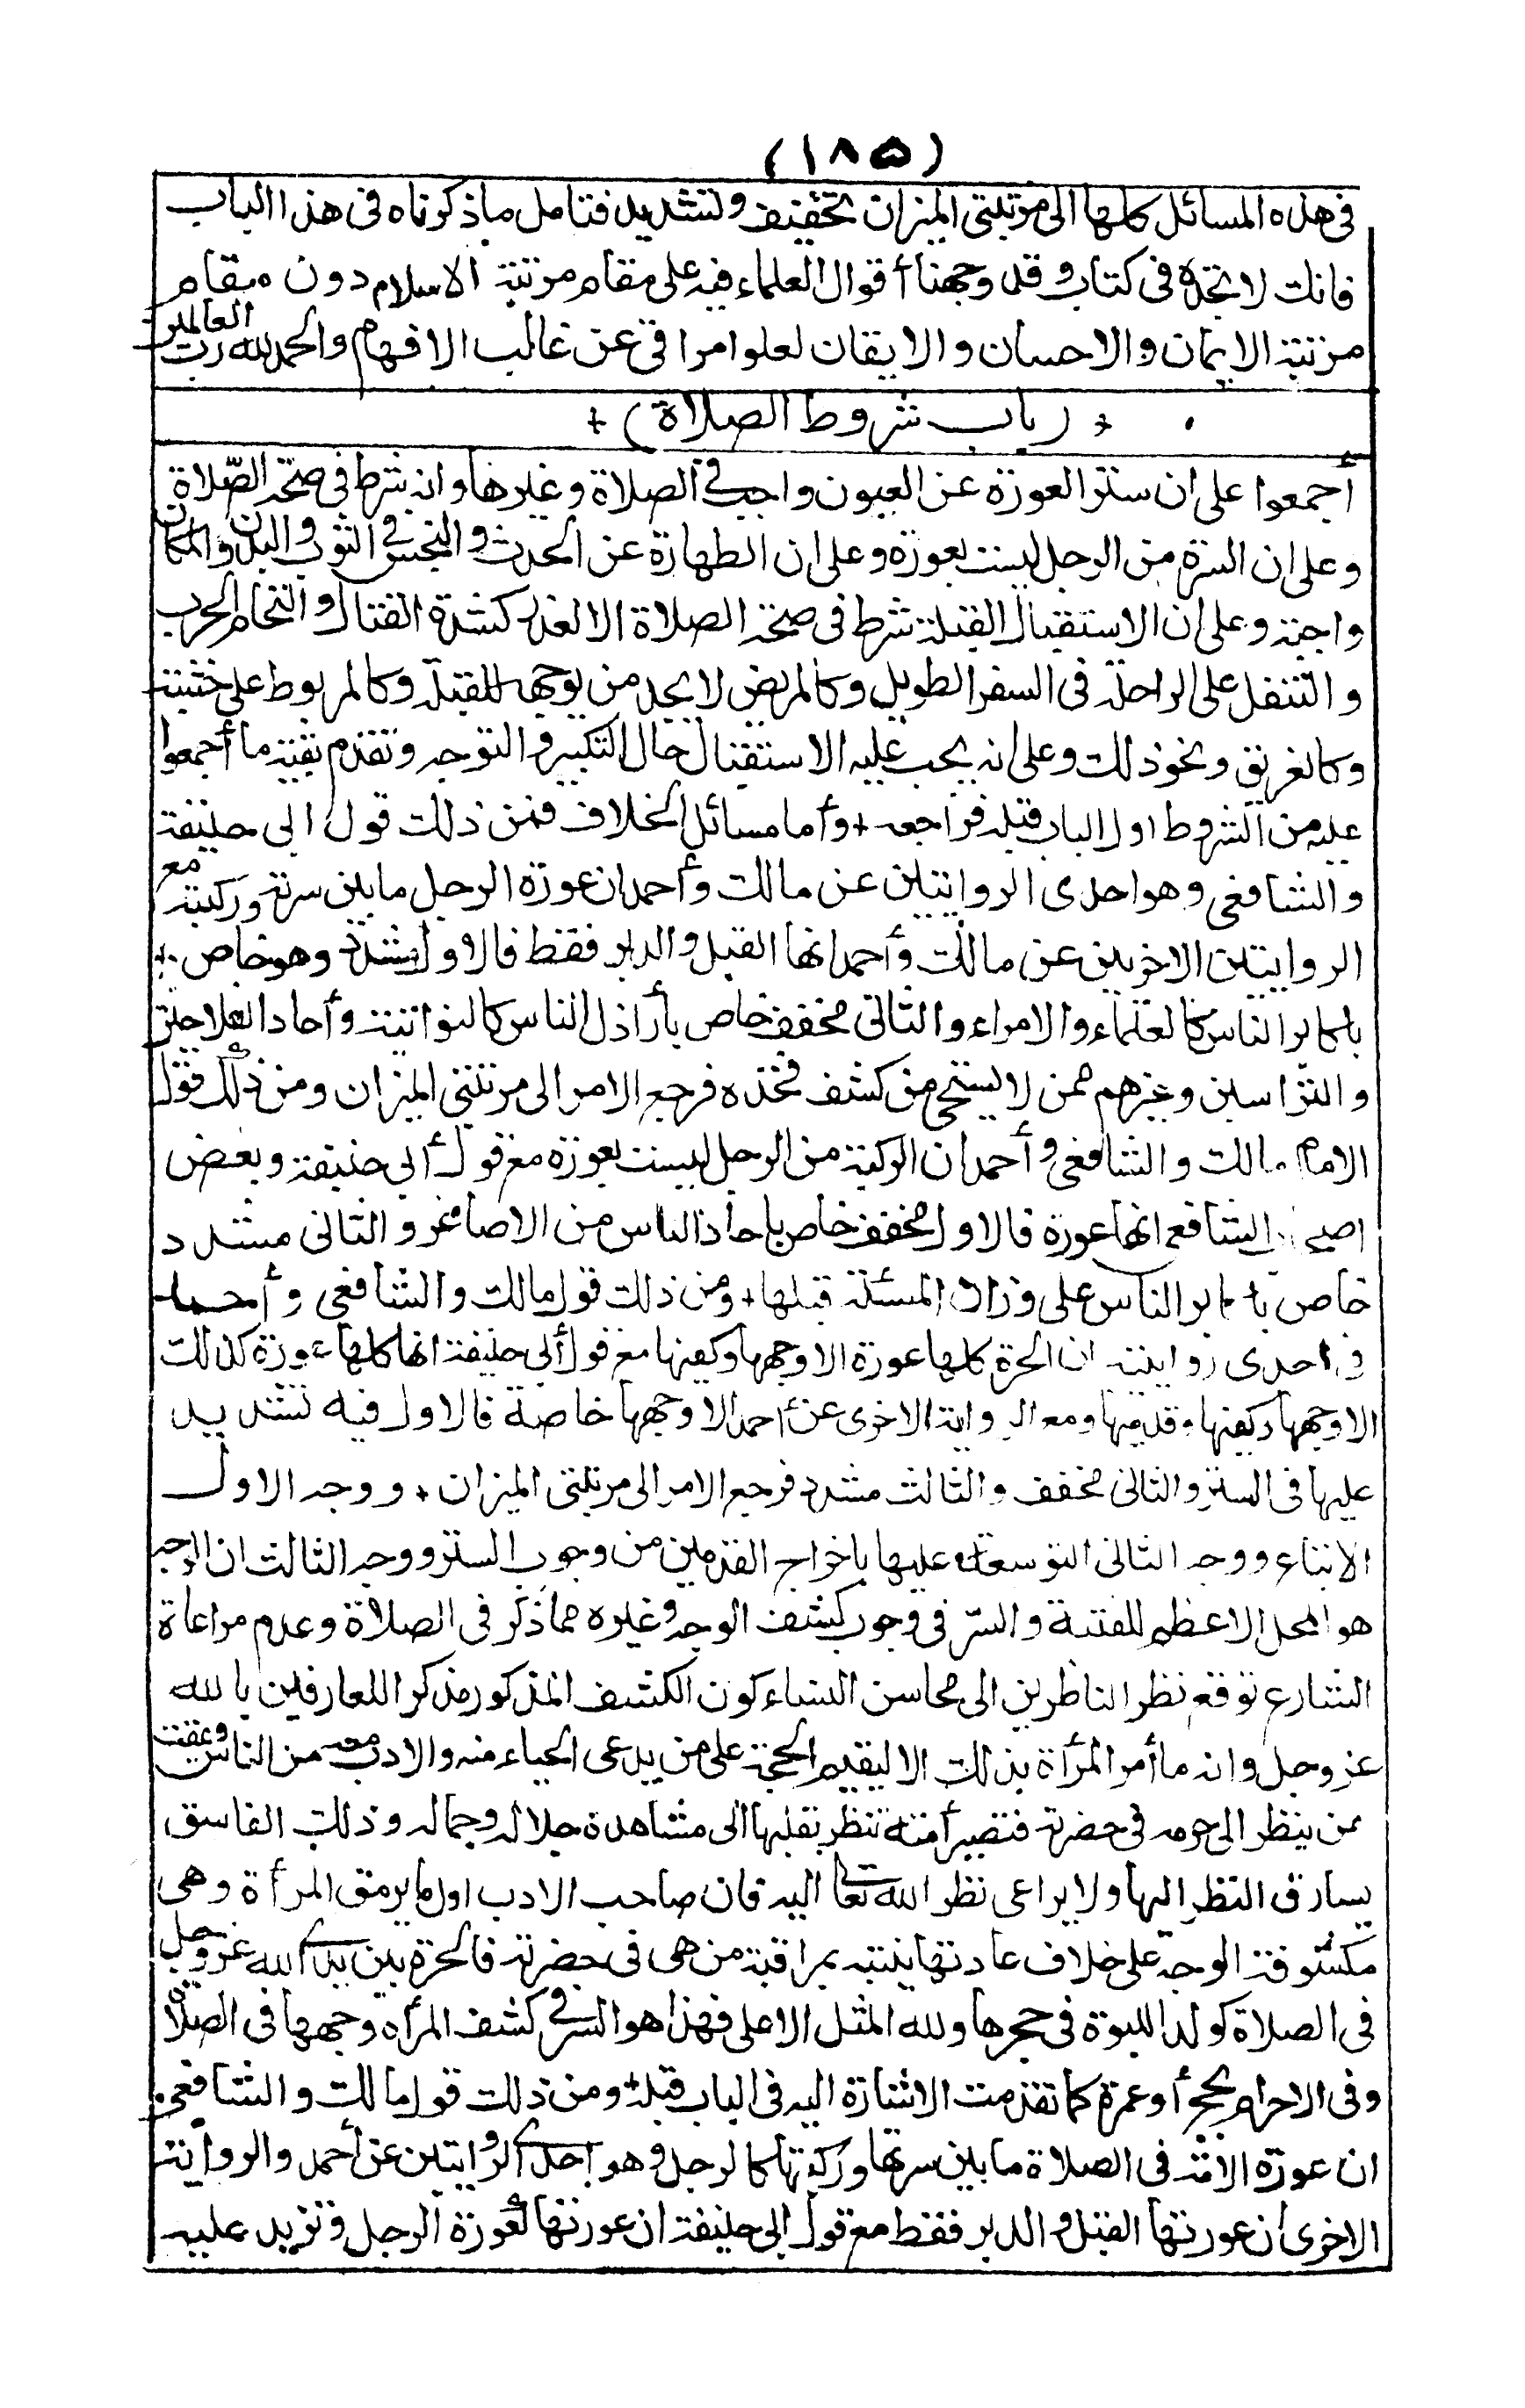 (١٨٥)
فى هذه المسائل كلها الى مرتبتى الميزان تخفيف وتشديد فتامل ماذكرناه فى هذا الباب
فانك لا تجده فى كتاب وقد وجهنا أقوال العلماء فيه على مقام مرتبة الاسلام دون مقام
مرتبة الايمان والاحسان والايقان لعلوا مراقى عن غالب الافهام والحمد لله رب العالمين
+ (باب شروط الصلاة) +
أجمعوا على ان ستر العورة عن العيون واجب فى الصلاة وغيرها وانه شرط فى صحة الصّلاة
وعلى ان السرة من الرجل ليست بعورة وعلى ان الطهارة عن الحدث والنجس فى الثوب والبدن والمكان
واجبة وعلى ان الاستقبال القبلة شرط فى صحة الصلاة الا لعذر كشدة القتال والتحام الحرب
والتنفل على الراحلة فى السفر الطويل وكالمريض لا يجد من يوجهه للقبلة وكالمربوط على خشبة
وكالغريق ونحو ذلك وعلى انه يجب عليه الاستقبال حال التكبير والتوجه وتقدم بقية ما أجمعوا
عليه من الشروط اول الباب قبله فراجعه + وأما مسائل الخلاف فمن ذلك قول ابى حنيفة
والشافعى وهو احدى الروايتين عن مالك وأحمد ان عورة الرجل ما بين سرته وركبته مع
الروايتين الاخريين عن مالك وأحمد انها القبل والدبر فقط فالاول مشدد وهو خاص
باكابر الناس كالعلماء والامراء والثانى مخفف خاص بأراذل الناس كالنواتية وأحاد الفلاحين
والترّاسين وغيرهم ممن لا يستحى من كشف فخذه فرجع الامر الى مرتبتى الميزان ومن ذلك قول
الامام مالك والشافعى وأحمد ان الركبة من الرجل ليست بعورة مع قول أبى حنيفة وبعض
اصحاب الشافعى انها عورة فالاول مخفف خاص باحاذ الناس من الاصاغر والثانى مشدد
خاص باكابر الناس على وزان المسئلة قبلها + ومن ذلك قول مالك والشافعى وأحمد
فى احدى روايته ان الحرة كلها عورة الا وجهها وكفيها مع قول أبى حنيفة انها كلها عورة كذلك
الا وجهها وكفيها وقدميها ومع الرواية الاخرى عن أحمد الا وجهها خاصة فالاول فيه تشديد
عليها فى الستر والثانى مخفف والثالث مشدد فرجع الامر الى مرتبتى الميزان + ووجه الاول
الاتباع ووجه الثانى التوسعة عليها باخراج القدمين من وجوب الستر ووجه الثالث ان الوجه
هو المحل الاعظم للفتنة والسّر فى وجوب كشف الوجه وغيره مما ذكر فى الصلاة وعدم مراعاة
الشارع توقع نظر الناظرين الى محاسن النساء كون الكشف المذكور مذكرا للعارفين بالله
عز وجل وانه ما أمر المرأة بذلك الا ليقيم الحجة على من يدعى الحياء منه والادب معه من الناس وعفت
عمن ينظر الى حرمه فى حضرته فتصير أمته تنظر بقلبها الى مشاهدة جلاله وجماله وذلك الفاسق
يسارق النظر اليها ولا يراعى نظر الله تعالى اليه فان صاحب الادب اول ما يرمق المرأة وهى
مكشوفة الوجه على خلاف عادتها ينتبه بمراقبة من هى فى حضرته فالحرة بين يدى الله عز وجل
فى الصلاة كولد اللبوة فى حجرها ولله المثل الاعلى فهذا هو السر فى كشف المرأة وجهها فى الصلاة
وفى الاحرام بحج أو عمرة كما تقدمت الاشارة اليه فى الباب قبله + ومن ذلك قول مالك والشافعى
ان عورة الامة فى الصلاة ما بين سرتها وركبتها كالرجل وهو احدى الروايتين عن أحمد والرواية
الاخرى ان عورتها القبل والدبر فقط مع قول ابى حنيفة ان عورتها كعورة الرجل وتزيد عليه